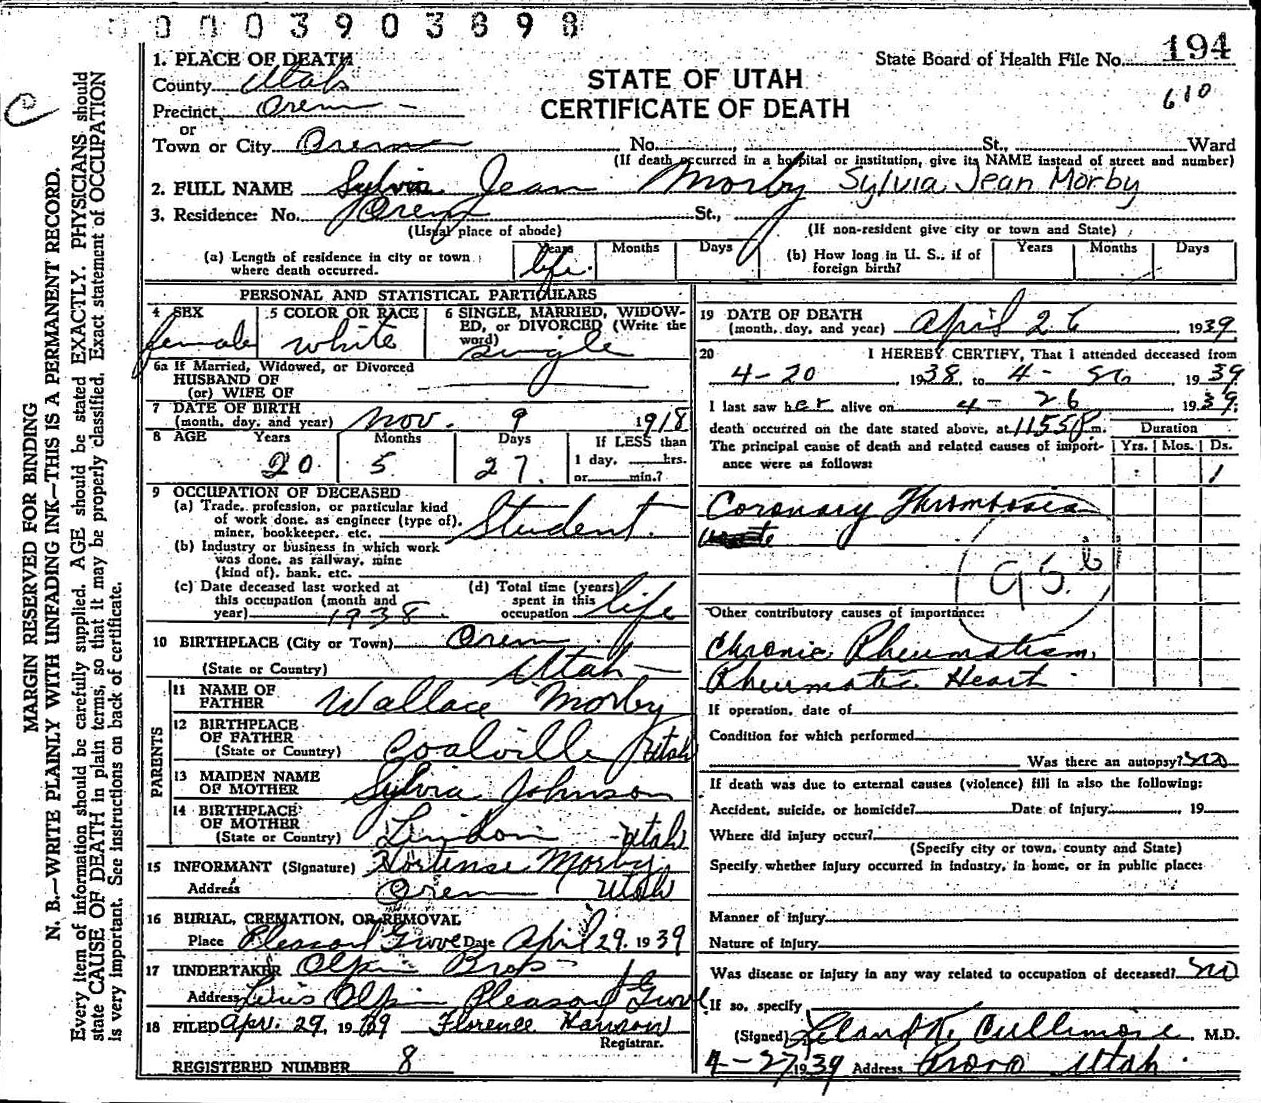 0003903898
194
610
C
MARGIN RESERVED FOR BINDING
N. B.—WRITE PLAINLY WITH UNFADING INK—THIS IS A PERMANENT RECORD.
Every item of information should be carefully supplied. AGE should be stated EXACTLY. PHYSICIANS should
state CAUSE OF DEATH in plain terms, so that it may be properly classified. Exact statement of OCCUPATION
is very important. See instructions on back of certificate.
State Board of Health File No.
STATE OF UTAH
CERTIFICATE OF DEATH
1. PLACE OF DEATH
County Utah
Precinct Orem
or
Town or City Orem No. St., Ward
(If death occurred in a hospital or institution, give its NAME instead of street and number)
2. FULL NAME Sylvia Jean Morby Sylvia Jean Morby
3. Residence: No. Orem St.,
(Usual place of abode) (If non-resident give city or town and State)
(a) Length of residence in city or town where death occurred. Years life Months Days
(b) How long in U. S., if of foreign birth? Years Months Days
PERSONAL AND STATISTICAL PARTICULARS
4 SEX female
5 COLOR OR RACE white
6 SINGLE, MARRIED, WIDOWED, or DIVORCED (Write the word) single
6a If Married, Widowed, or Divorced
HUSBAND OF
(or) WIFE OF
7 DATE OF BIRTH
(month, day, and year) Nov. 9 1918
8 AGE Years 20 Months 5 Days 27 If LESS than
1 day, hrs.
or min.?
9 OCCUPATION OF DECEASED
(a) Trade, profession, or particular kind
of work done, as engineer (type of),
miner, bookkeeper, etc. Student
(b) Industry or business in which work
was done, as railway, mine
(kind of), bank, etc.
(c) Date deceased last worked at
this occupation (month and
year) 1938
(d) Total time (years)
spent in this
occupation life
10 BIRTHPLACE (City or Town) Orem
(State or Country) Utah
PARENTS
11 NAME OF
FATHER Wallace Morby
12 BIRTHPLACE
OF FATHER
(State or Country) Coalville Utah
13 MAIDEN NAME
OF MOTHER Sylvia Johnson
14 BIRTHPLACE
OF MOTHER
(State or Country) Lindon Utah
15 INFORMANT (Signature) Hortense Morby
Address Orem Utah
16 BURIAL, CREMATION, OR REMOVAL
Place Pleasant Grove Date April 29, 1939
17 UNDERTAKER Olpin Bros
Address Olpin Pleasant Grove
18 FILED Apr. 29, 1939 Florence Hanson
Registrar.
REGISTERED NUMBER 8
19 DATE OF DEATH
(month, day, and year) April 26, 1939
20 I HEREBY CERTIFY, That I attended deceased from
4-20 1938, to 4-26, 1939
I last saw her alive on 4-26 1939;
death occurred on the date stated above, at 1155P m.
The principal cause of death and related causes of importance were as follows:
Duration
Yrs. Mos. Ds.
1
Coronary Thrombosis
95 b
Other contributory causes of importance:
Chronic Rheumatism
Rheumatic Heart
If operation, date of
Condition for which performed
Was there an autopsy? no
If death was due to external causes (violence) fill in also the following:
Accident, suicide, or homicide? Date of injury, 19
Where did injury occur?
(Specify city or town, county and State)
Specify whether injury occurred in industry, in home, or in public place:
Manner of injury
Nature of injury
Was disease or injury in any way related to occupation of deceased? no
If so, specify
(Signed) Leland K. Cullimore, M.D.
4-27 1939 Address Provo Utah.